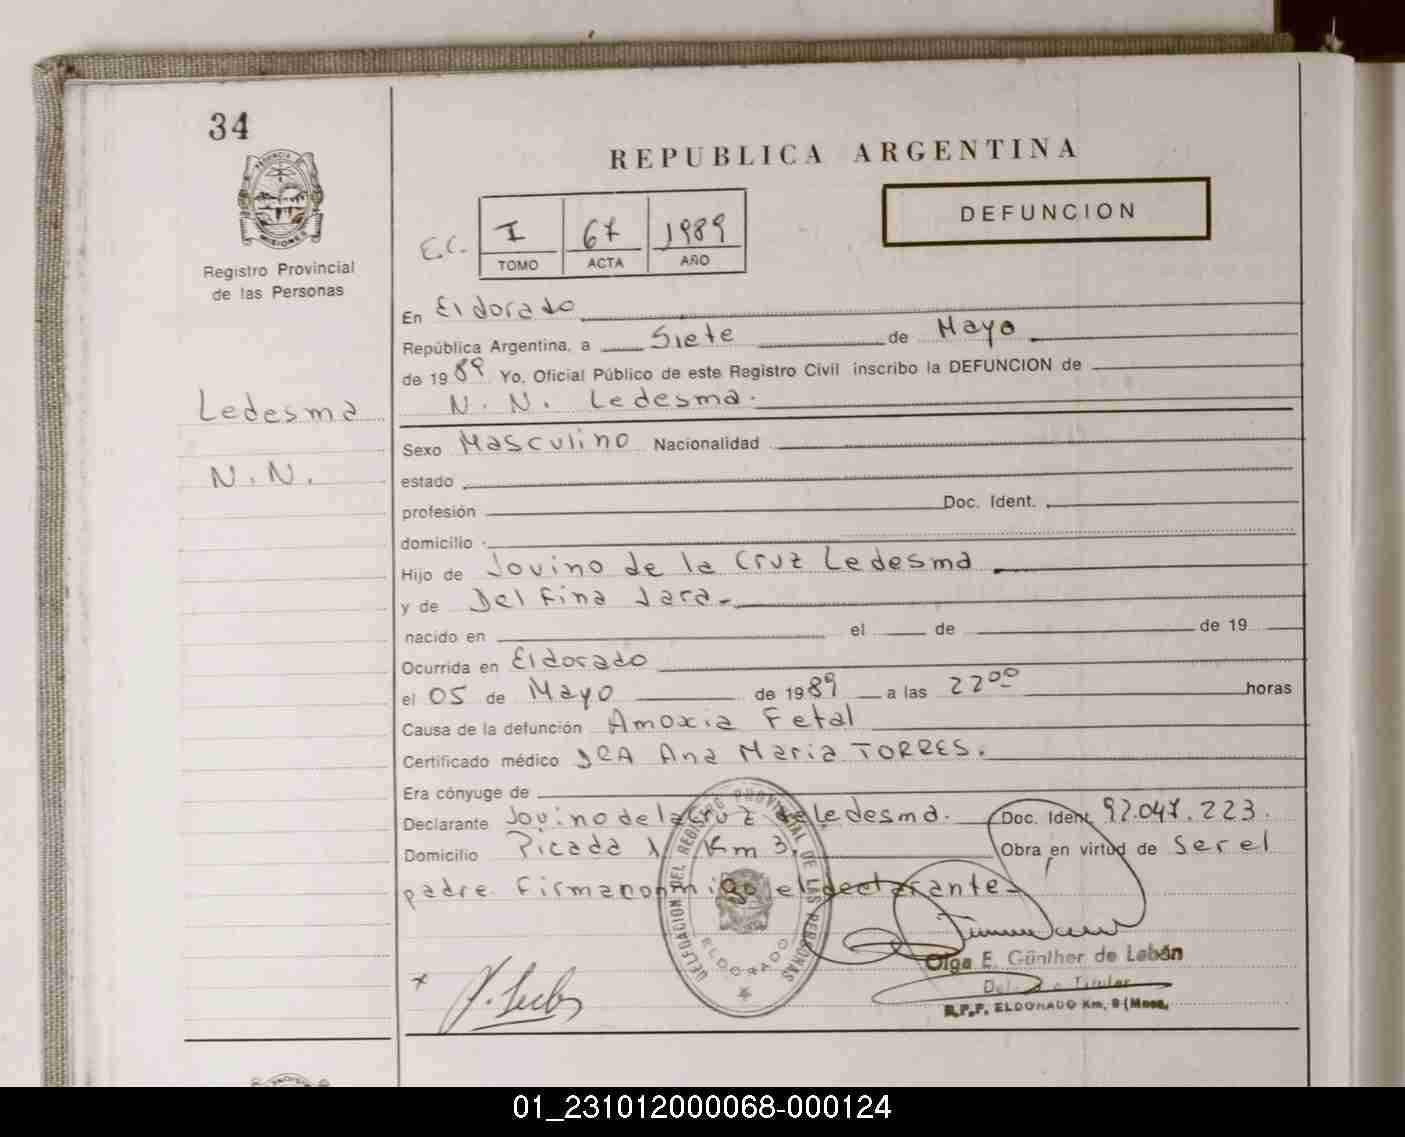 34
PROVINCIA DE
MISIONES
Registro Provincial
de las Personas
Ledesma
N. N.
REPUBLICA ARGENTINA
DEFUNCION
E.C. I 67 1989
TOMO ACTA AÑO
En Eldorado
República Argentina, a Siete de Mayo
de 1989 Yo, Oficial Público de este Registro Civil inscribo la DEFUNCION de
N. N. Ledesma.
Sexo Masculino Nacionalidad
estado
profesión Doc. Ident.
domicilio
Hijo de Jovino de la Cruz Ledesma
y de Delfina Jara
nacido en el de de 19
Ocurrida en Eldorado
el 05 de Mayo de 1989 a las 22 00 horas
Causa de la defunción Amoxia Fetal
Certificado médico DRA Ana Maria TORRES.
Era cónyuge de
Declarante Jovino de la Cruz de Ledesma. Doc. Ident. 92.047.223.
Domicilio Picada 1 Km 3, Obra en virtud de Ser el
padre. Firma conmigo el declarante
DELEGACION DEL REGISTRO PROVINCIAL DE LAS PERSONAS
ELDORADO
Olga E. Günther de Lebán
Titular
R.P.P. ELDORADO Km. 9 (Mnes.
01_231012000068-000124